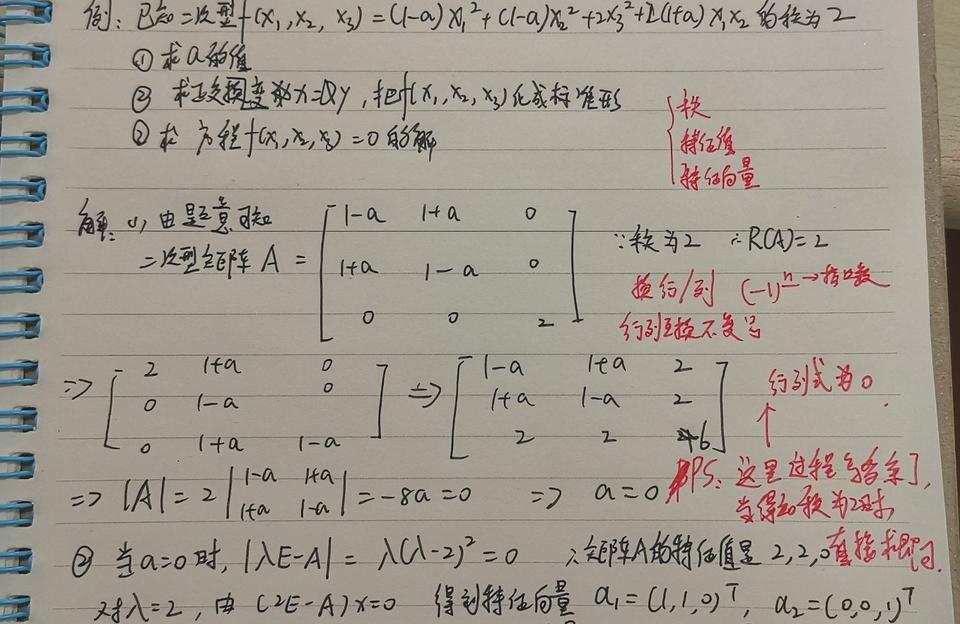 例: 已知二次型f(x₁,x₂,x₃)=(1-a)x₁²+(1-a)x₂²+2x₃²+2(1+a)x₁x₂的秩为2
① 求a的值
② 求正交变换x=Qy,把f(x₁,x₂,x₃)化成标准形
③ 求方程f(x₁,x₂,x₃)=0的解
秩
特征值
特征向量
解: (1) 由题意可知
二次型矩阵 A =
1-a 1+a 0
1+a 1-a 0
0 0 2
∵秩为2 ∴R(A)=2
换行/列 (-1)ⁿ→指口数
行列互换不变号
=> 2 1+a 0
0 1-a 0
0 1+a 1-a
=> 1-a 1+a 2
1+a 1-a 2
2 2 6
行列式为0
↑
=> |A| = 2 | 1-a 1+a
1+a 1-a | = -8a = 0 => a=0
PS: 这里过程写多余了,
当得知秩为2时,
直接求即可.
② 当a=0时, |λE-A| = λ(λ-2)² = 0 ∴矩阵A的特征值是 2,2,0
对λ=2, 由(2E-A)x=0 得到特征向量 a₁=(1,1,0)ᵀ, a₂=(0,0,1)ᵀ